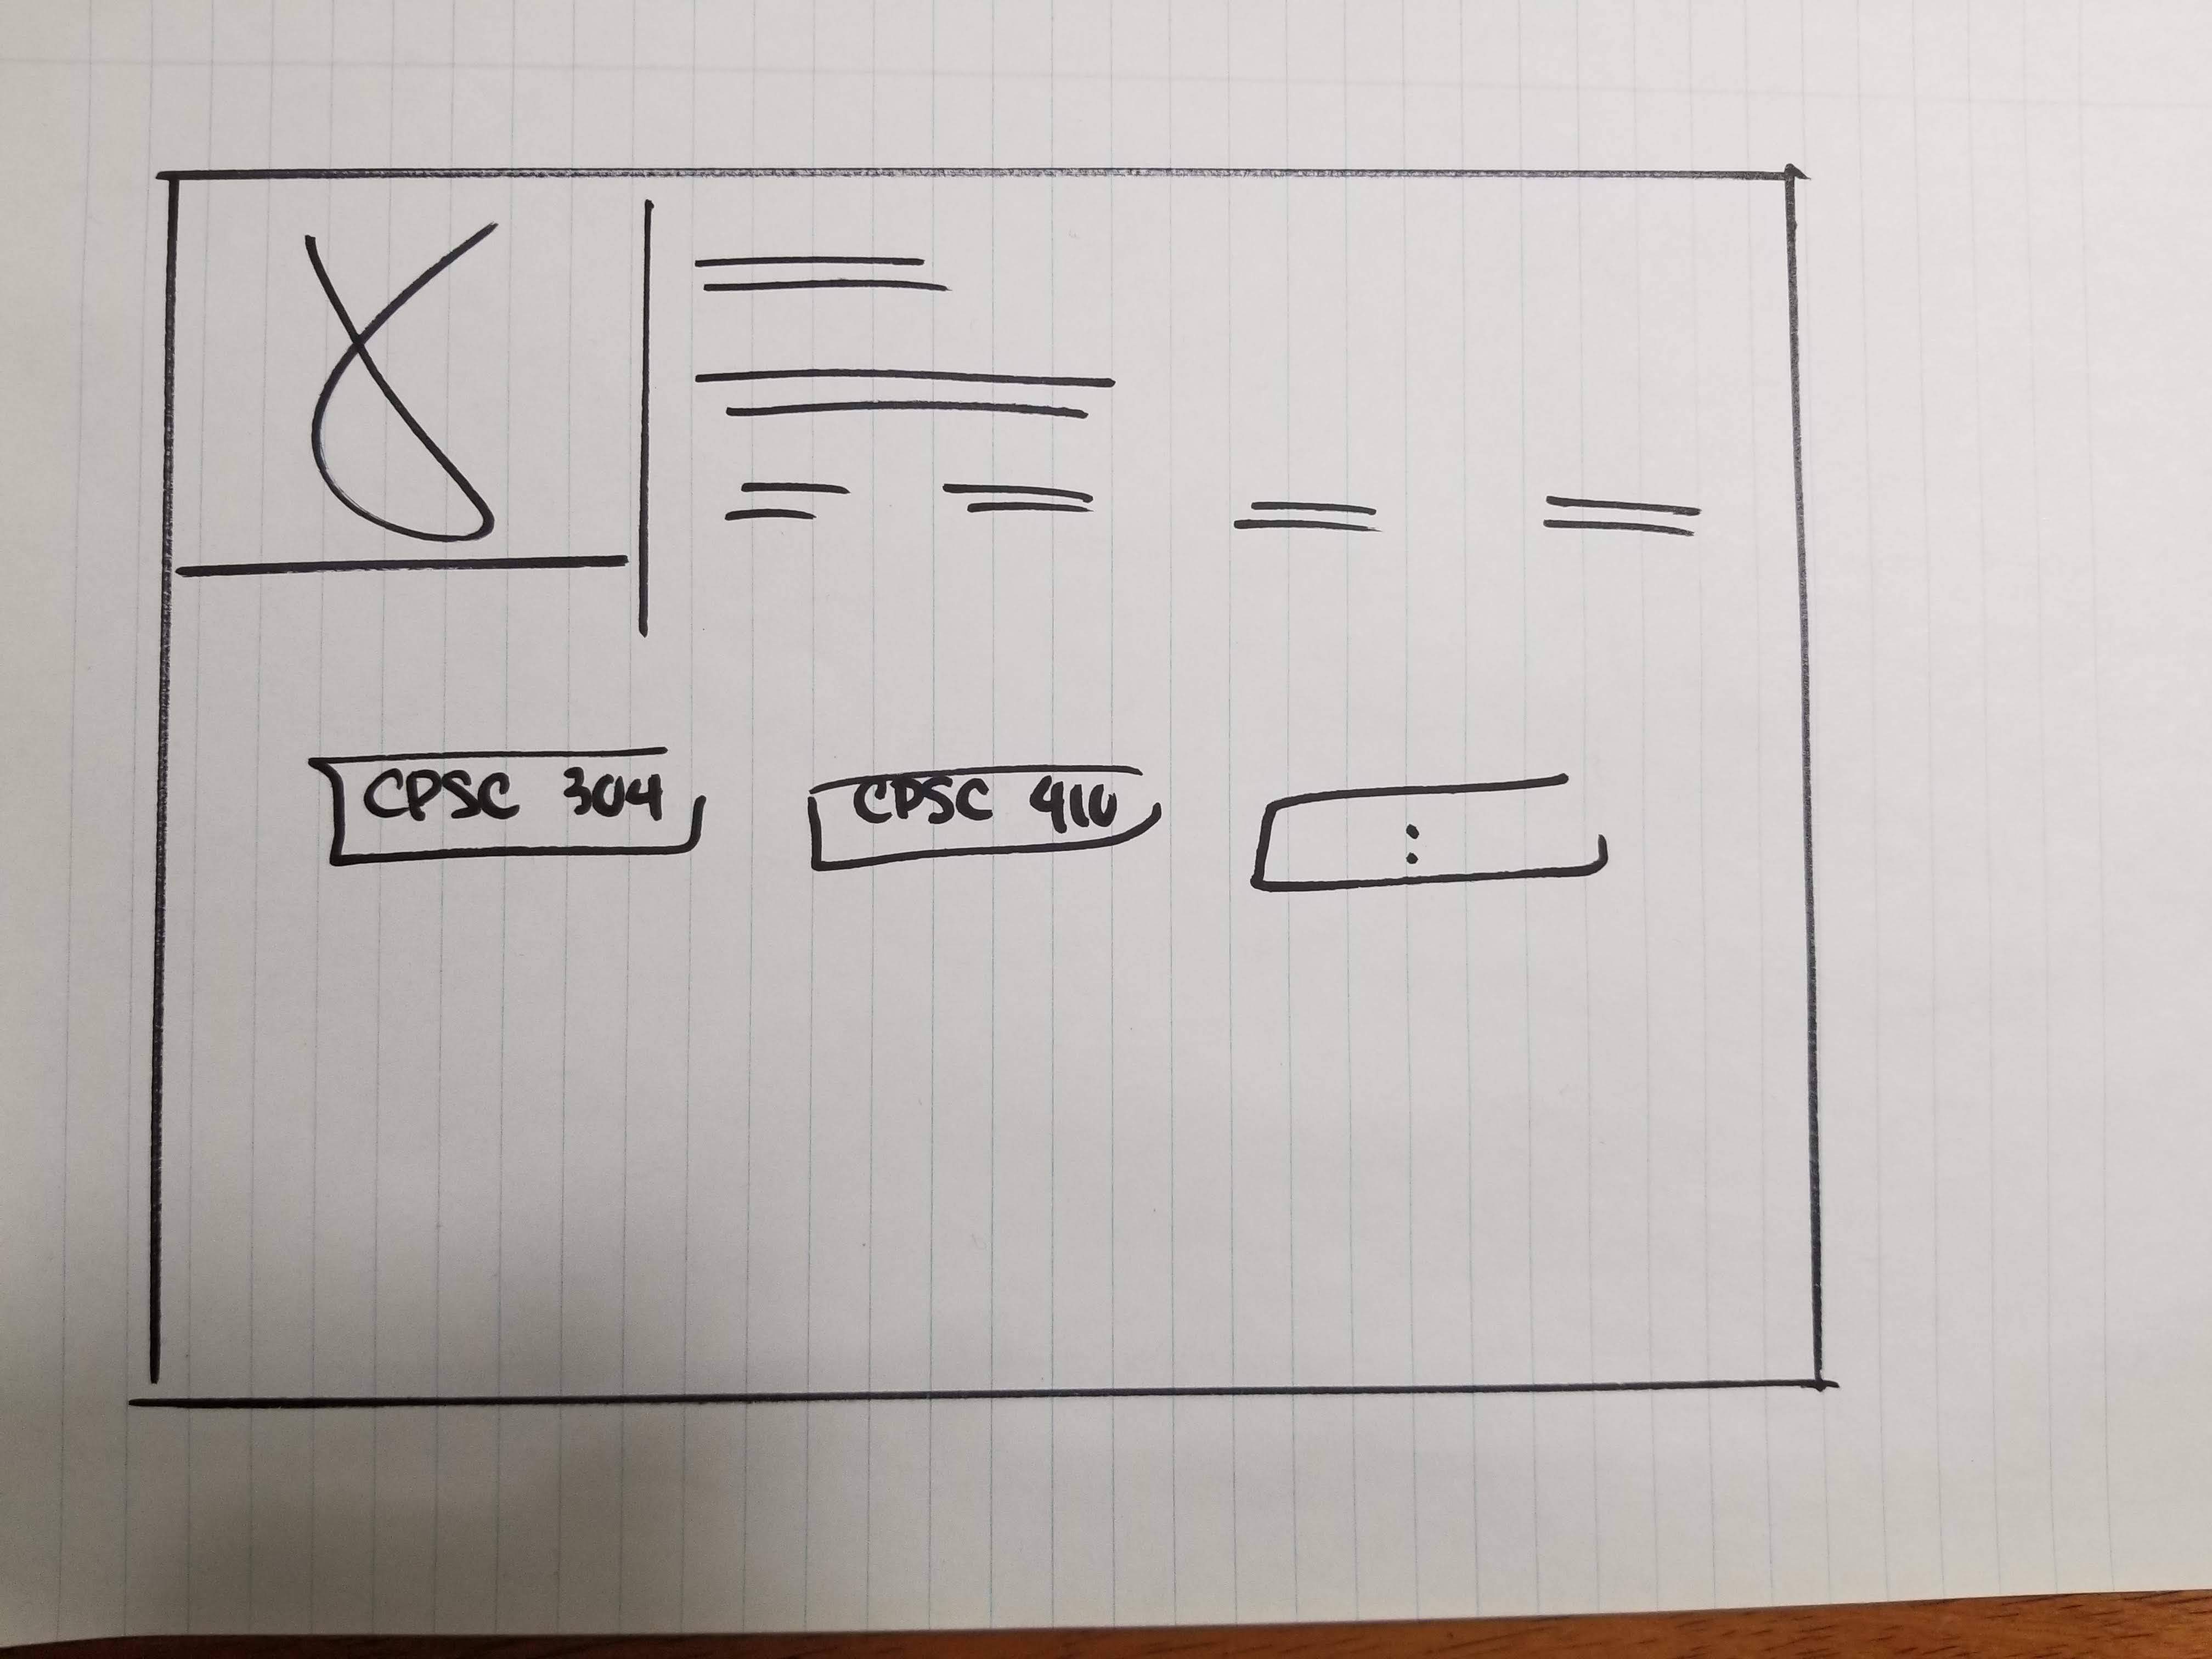 CPSC 304 CPSC 410 :